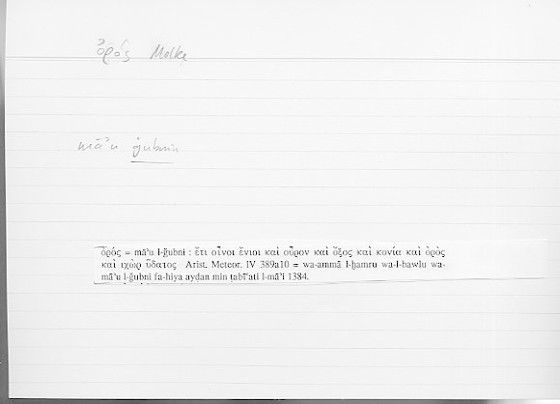 ὀρός Molke
māʾu ǧubnin
ὀρός = māʾu l-ǧubni : ἔτι οἶνοι ἔνιοι καὶ οὖρον καὶ ὄξος καὶ κονία καὶ ὀρὸς
καὶ ἰχὼρ ὕδατος Arist. Meteor. IV 389a10 = wa-ammā l-ḫamru wa-l-bawlu wa-
māʾu l-ǧubni fa-hiya ayḍan min ṭabīʿati l-māʾi 1384.